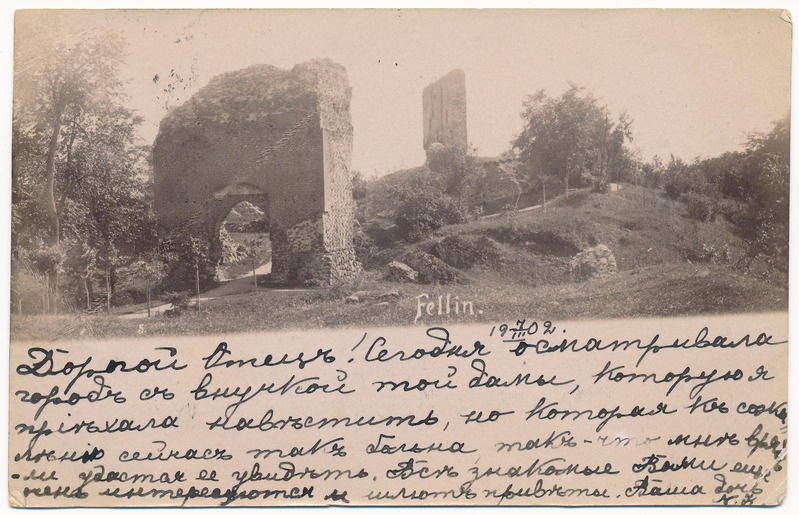 Fellin.
19 7/III 02.
Дорогой Отецъ! Сегодня осматривала
городъ съ внучкой той дамы, которую я
пріѣхала навѣстить, но которая къ сожа-
лѣнію сейчасъ такъ больна, такъ-что мнѣ врядъ
-ли удастся ее увидѣть. Всѣ знакомые Вами
очень интересуются и шлютъ привѣты. Ваша дочь